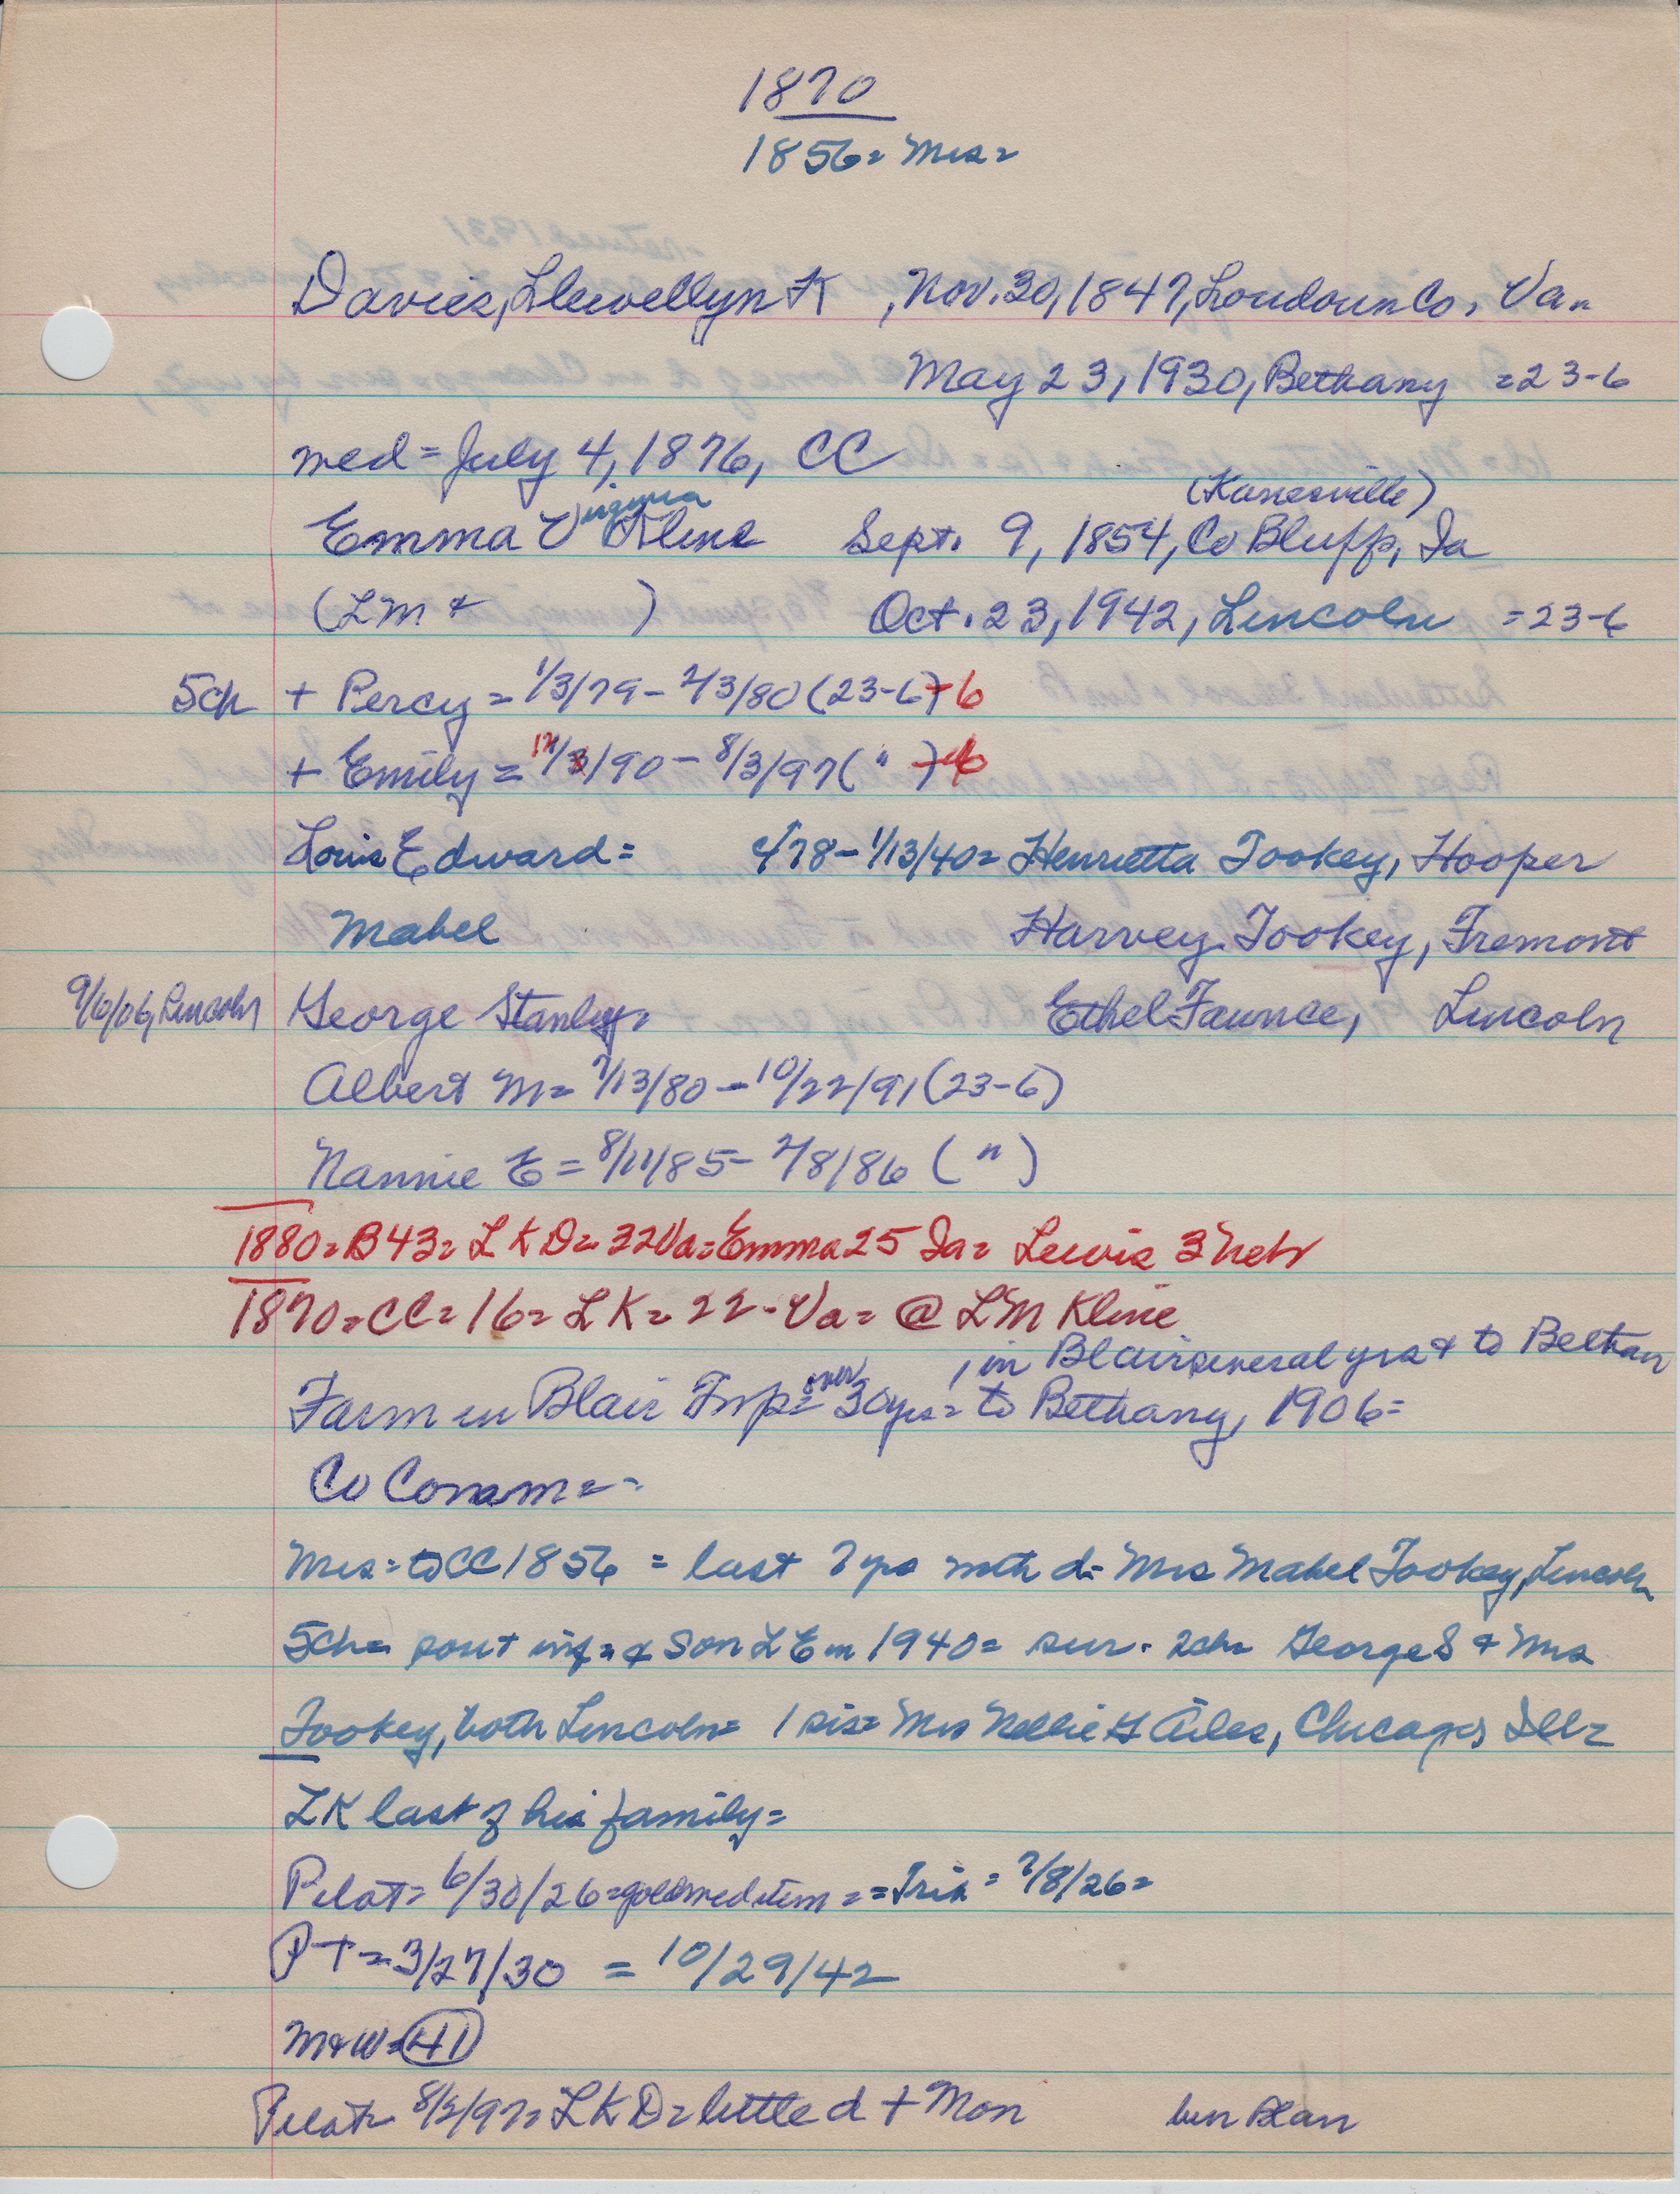 1870
1856= Mrs=
Davies, Llewellyn K , Nov. 30, 1847, Loudoun Co, Va.
May 23, 1930, Bethany =23-6
med= July 4, 1876, CC
(Kanesville)
Emma Virginia Kline Sept. 9, 1854, Co Bluffs, Ia
(LM + ) Oct. 23, 1942, Lincoln =23-6
5ch + Percy = 1/3/79- 2/3/80 (23-6) 6
+ Emily = /90 - 8/3/97 ( " ) 6
Louis Edward= /78- 1/13/40= Henrietta Tookey, Hooper
Mabel Harvey Tookey, Fremont
9/6/06, Lincoln George Stanley= Ethel Faunce, Lincoln
Albert M= 7/13/80 - 10/22/91 (23-6)
Nannie E = 8/11/85- 2/8/86 ( " )
1880= B43= LKD= 32Va= Emma 25 Ia= Lewis 3 Nebr
1870= CC= 16= LK= 22-Va= @ LM Kline
, in Blair several yrs + to Bethan
Farm in Blair Twp= over 30yrs= to Bethany, 1906=
Co Comm= -
Mrs= to CC 1856 = last 7 yrs with d= Mrs Mabel Tookey, Lincoln
5ch= inf= + son LE in 1940= sur. 2ch= George S + Mrs
Tookey, both Lincoln= 1 sis= Mrs Nellie G Ailes, Chicago, Ill=
LK last of his family=
Pilot= 6/30/26= gold wed item = =Trib = 7/8/26=
PT= 3/27/30 = 10/29/42
M+W= 41
Pilot= 8/5/97= LKD= little d + Mon bur Blair